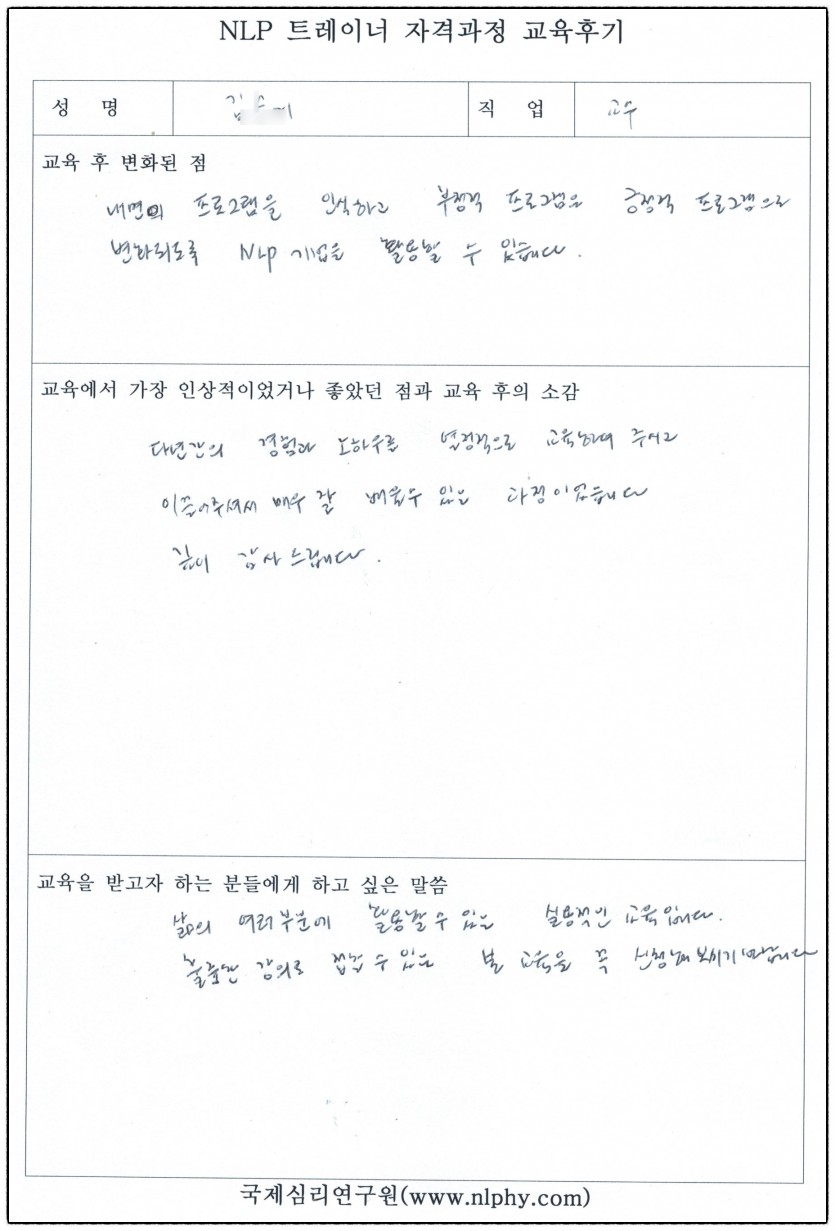 NLP 트레이너 자격과정 교육후기
성 명 김 직 업 교수
교육 후 변화된 점
내면의 프로그램을 인식하고 부정적 프로그램을 긍정적 프로그램으로
변화되도록 NLP 기법을 활용할 수 있습니다.
교육에서 가장 인상적이었거나 좋았던 점과 교육 후의 소감
다년간의 경험과 노하우를 열정적으로 교육하여 주시고
이끌어주셔서 매우 잘 배울수 있는 과정이었습니다
깊이 감사드립니다.
교육을 받고자 하는 분들에게 하고 싶은 말씀
삶의 여러부분에 활용할 수 있는 실용적인 교육입니다.
훌륭한 강의로 접할 수 있는 본 교육을 꼭 신청해 보시기 바랍니다
국제심리연구원(www.nlphy.com)